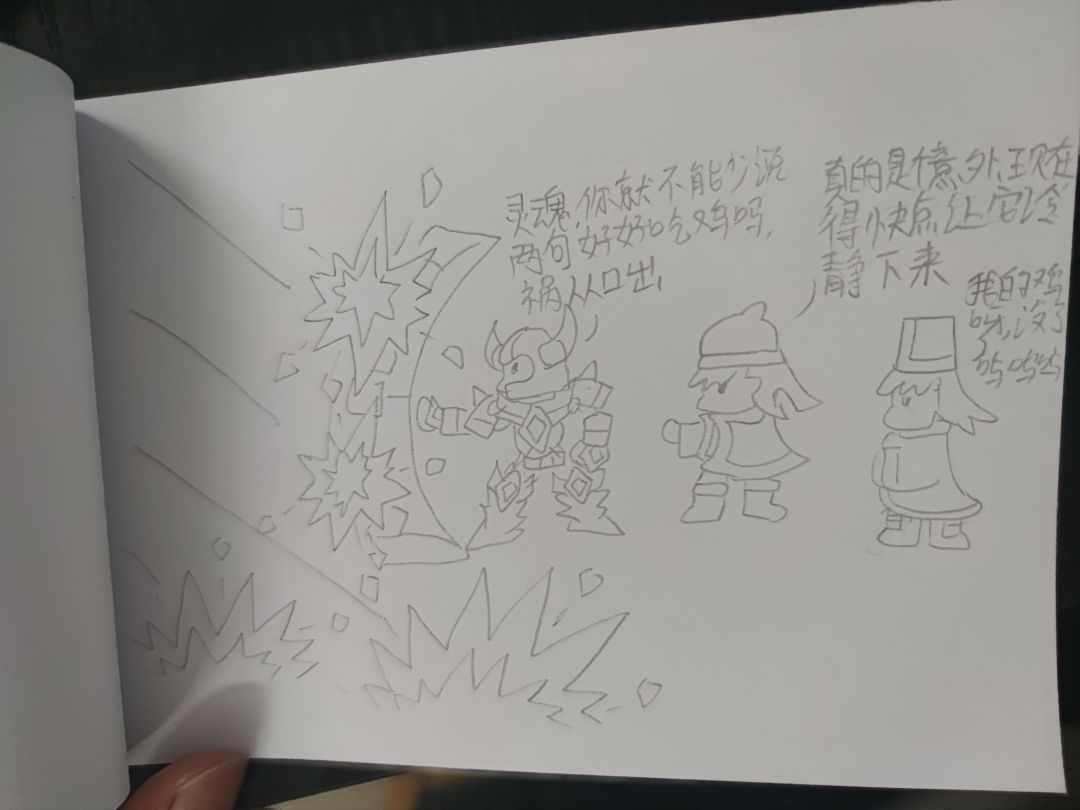 灵魂,你就不能少说
两句好好吃鸡吗,
祸从口出,
真的是意外,现在
得快点让它冷
静下来
我的鸡
呀,没了
呜呜呜